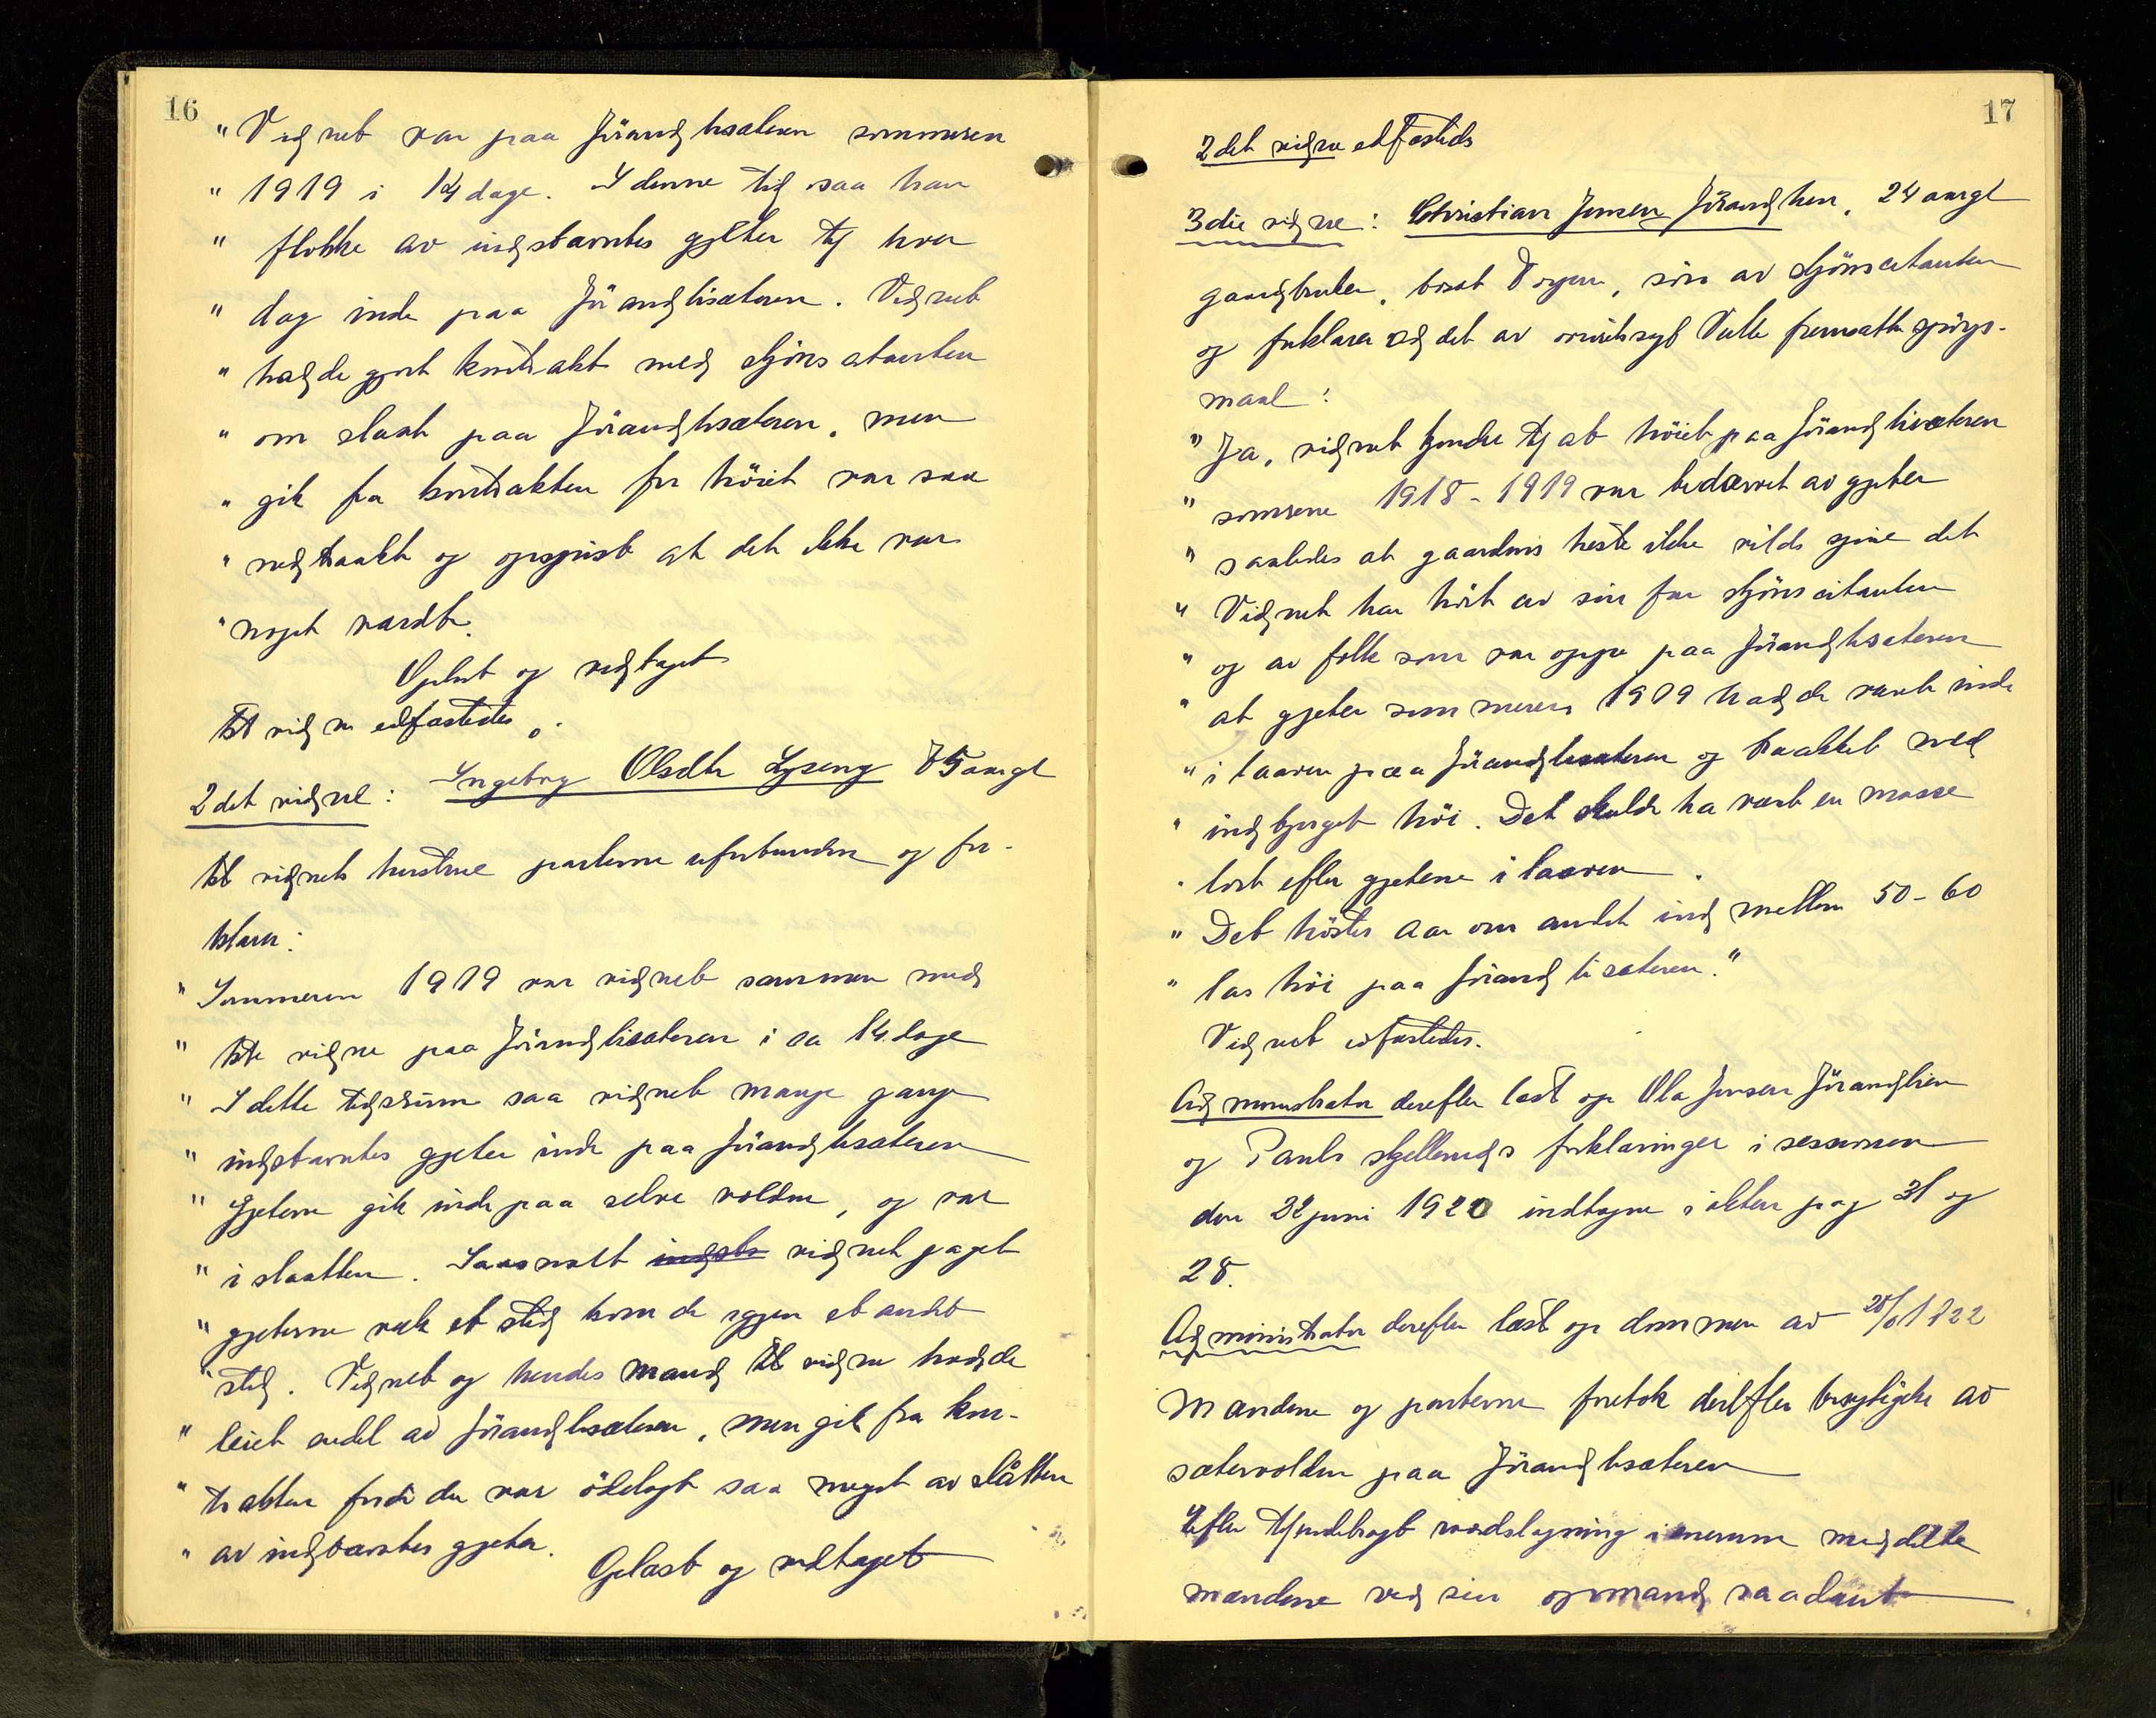 16
" Vidnet var paa Jörandlisæteren sommeren
" 1919 i 14 dage. I denne tid saa han
" flokke av indstevntes gjeter tj hver
" dag inde paa Jörandlisæteren. Vidnet
" hadde gjort kontrakt med skjönscitanten
" om slaat paa Jörandlisæteren, men
" gik fra kontrakten for höiet var saa
" nedtraakt og opspist at det ikke var
" noget værdt.
Oplæst og vedtaget
1st vidne edfæstedes.
2det vidne: Ingeborg Olsdtr Lyseng 75 aargl
1st vidnets hustrue parterne uforbunden og for-
klarer:
" Sommeren 1919 var vidnet sammen med
" 1ste vidne paa Jörandlisæteren i ca 14 dage
" I dette tidsrum saa vidnet mange gange
" indstevntes gjeter inde paa Jörandlisæteren
" Gjeterne gik inde paa selve volden, og var
" i slaatten. Saasnart indste vidnet jaget
" gjeterne væk et sted kom de igjen et andet
" sted. Vidnet og hendes mand 1st vidne hadde
" leiet endel av Jörandlisæteren, men gik fra kon-
" trakten fordi der var ödelagt saa meget av slåtten
" av indstevntes gjeter.
Oplæst og vedtaget
17
2det vidne edfæstedes
3die vidne: Christian Jensen Jörandlien, 24 aargl
gaardbruker, bosat Vogn, sön av skjönscitanten
og forklarer ved det av overretssagf Vulle fremsatte spörgs-
maal:
" Ja, vidnet kjender tj at höiet paa Jörandlisæteren
" somrene 1918-1919 var bedærvet av gjeter
" saaledes at gaardens heste ikke vilde spise det
" Vidnet har hört av sin far skjönscitanten
" og av folk som var oppe paa Jörandlisæteren
" at gjeter sommeren 1919 hadde været inde
" i laaven paa Jörandlisæteren og traakket ned
" indbjerget höi. Det skulde ha været en masse
" lort efter gjetene i laaven.
" Det höstes aar om andet ind mellem 50-60
" las höi paa Jörandlisæteren."
Vidnet edfæstedes.
Administrator derefter læst op Ola Jensen Jörandlien
og Pauls Skjelleruds forklaringer i sessionen
den 22 juni 1920 indtagne i akten pag 31 og
28.
Administrator derefter læst op dommen av 1922
Mændene og parterne foretok derefter besigtigelse av
sætervolden paa Jörandlisæteren
Efter tj endebragt raadslagning i enerum meddelte
mændene ved sin opmand saadant